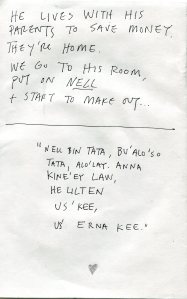 HE LIVES WITH HIS
PARENTS TO SAVE MONEY.
THEY'RE HOME.
WE GO TO HIS ROOM,
PUT ON NELL
+ START TO MAKE OUT...
"NELL BIN TATA, BU'ALO'SO
TATA, ALO'LAY. ANNA
KINE'EY LAW,
HE ULTEN
US' KEE,
US' ERNA KEE."